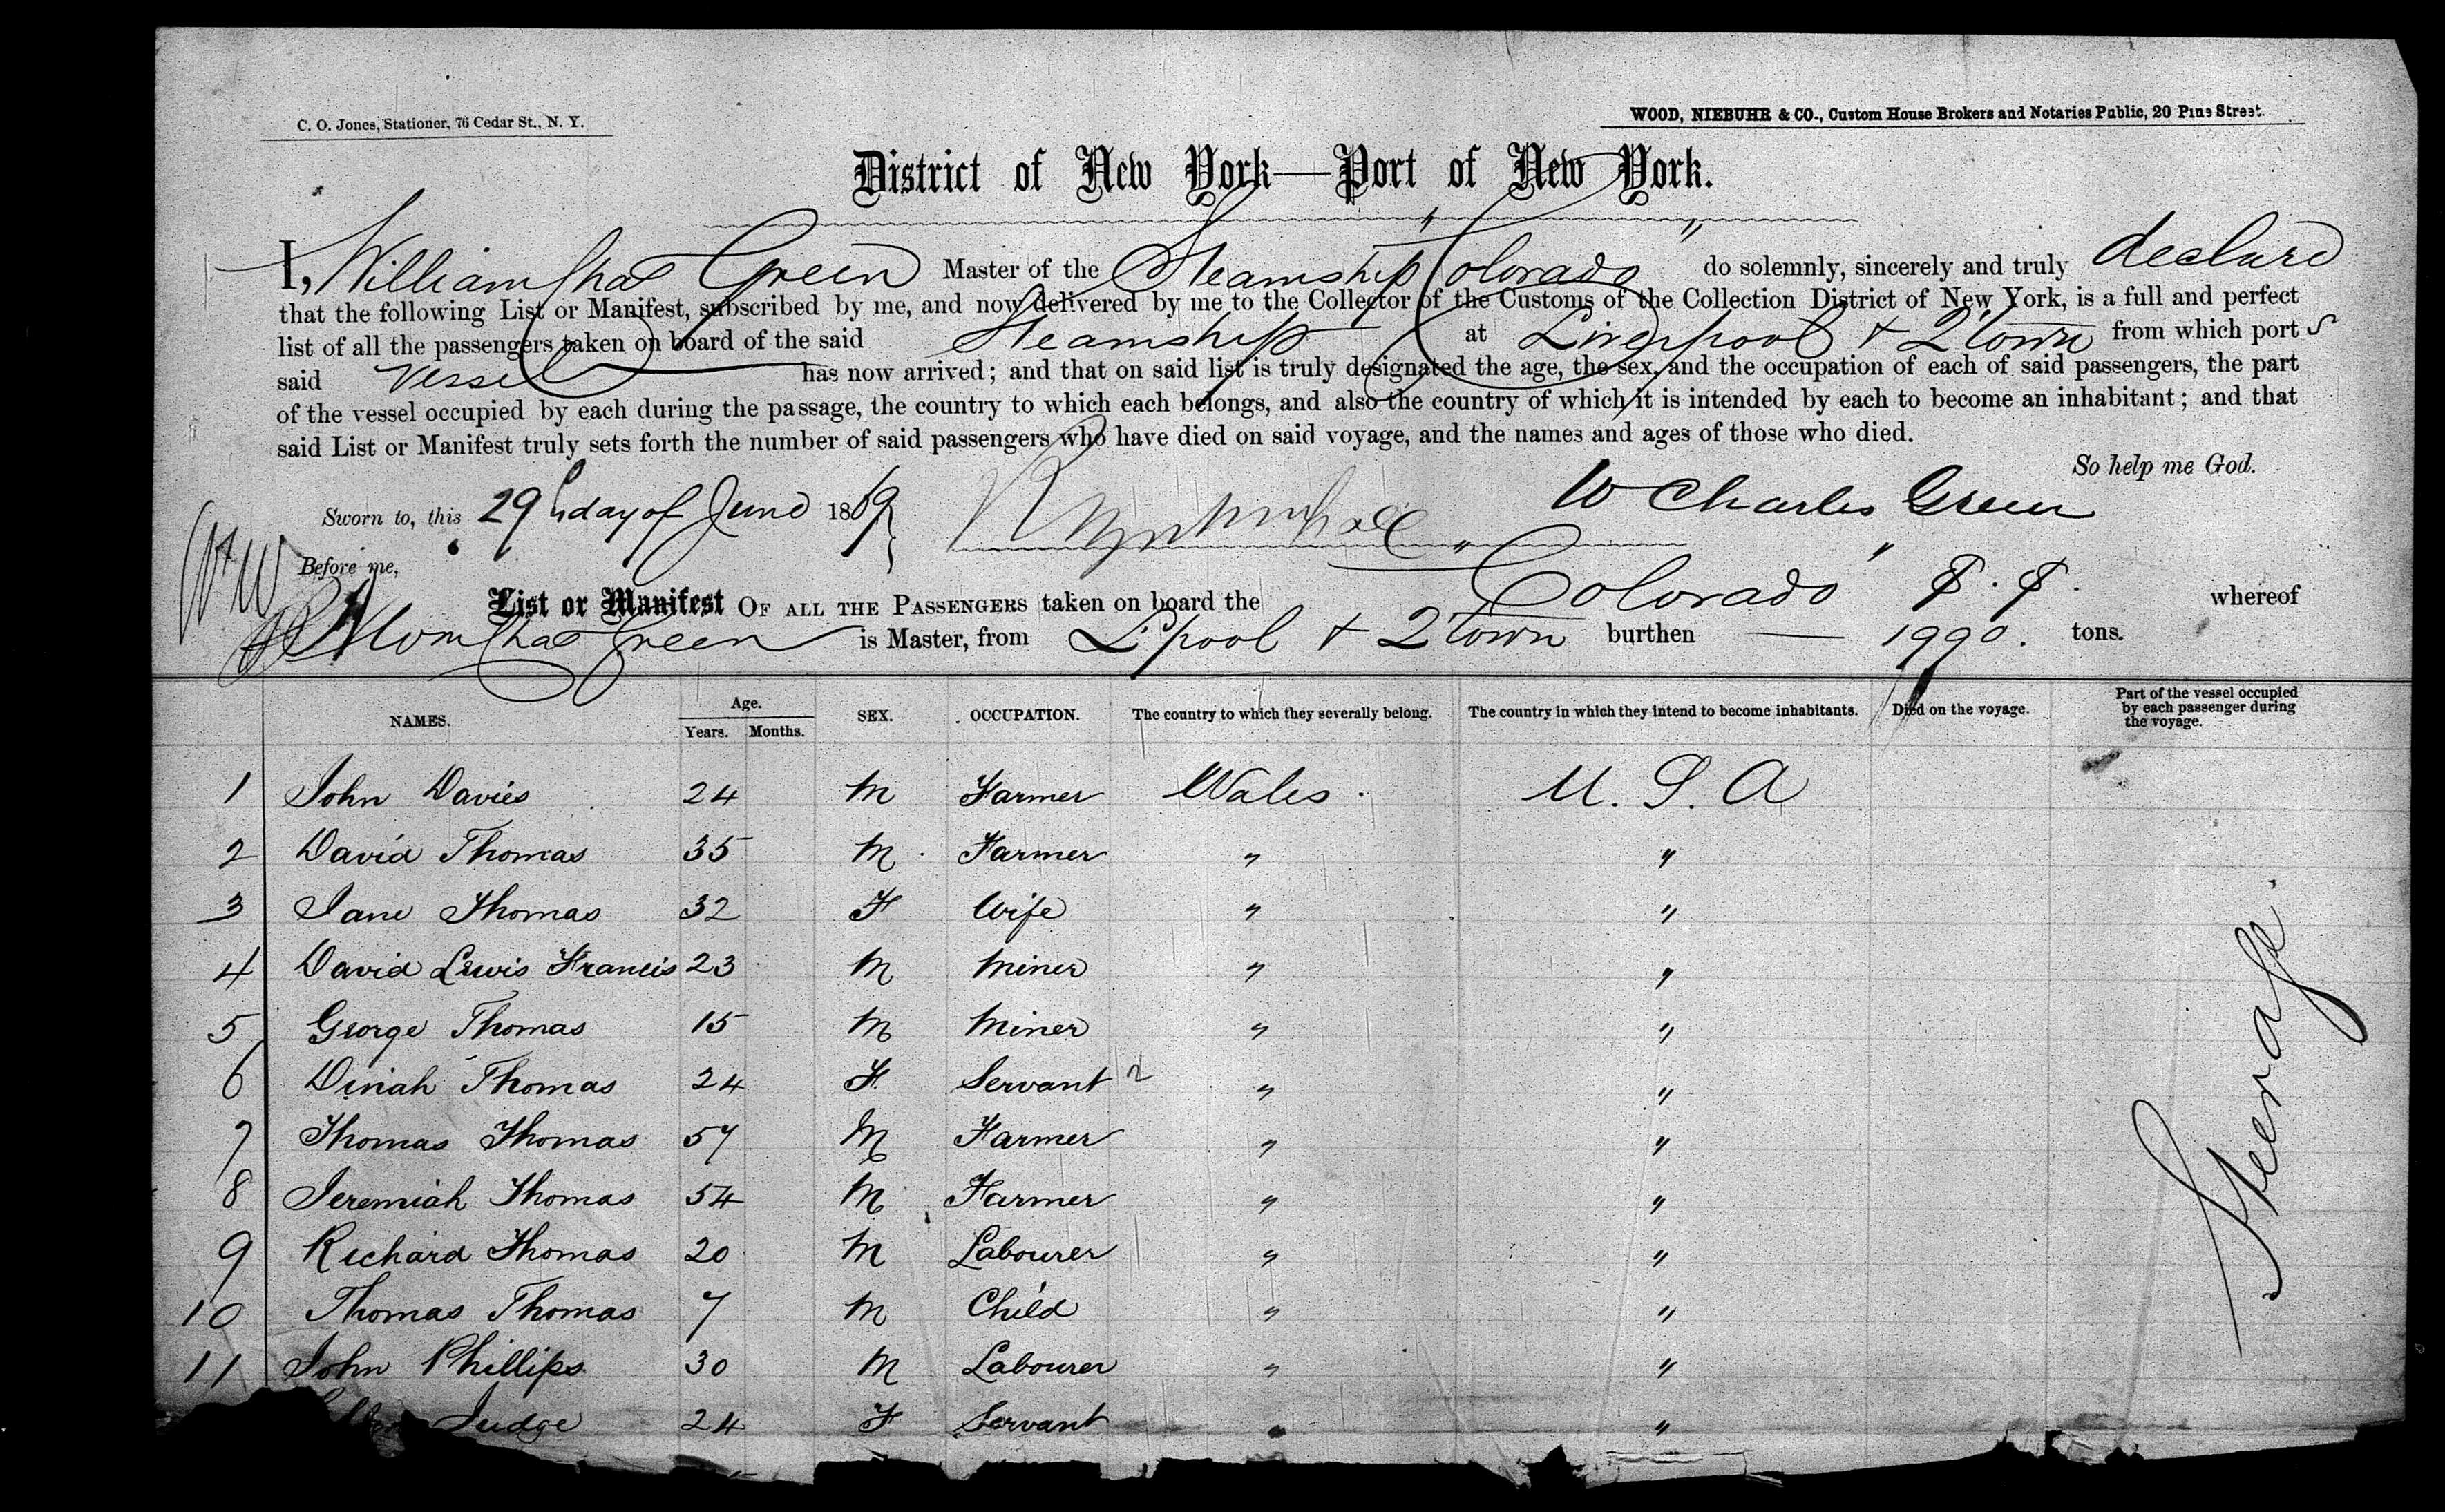 C. O. Jones, Stationer, 76 Cedar St., N. Y.
WOOD, NIEBUHR & CO., Custom House Brokers and Notaries Public, 20 Pine Street.
District of New York—Port of New York.
I, William Chas Green Master of the Steamship "Colorado" do solemnly, sincerely and truly declare
that the following List or Manifest, subscribed by me, and now delivered by me to the Collector of the Customs of the Collection District of New York, is a full and perfect
list of all the passengers taken on board of the said Steamship at Liverpool + Q'town from which port s
said Vessel has now arrived; and that on said list is truly designated the age, the sex, and the occupation of each of said passengers, the part
of the vessel occupied by each during the passage, the country to which each belongs, and also the country of which it is intended by each to become an inhabitant; and that
said List or Manifest truly sets forth the number of said passengers who have died on said voyage, and the names and ages of those who died.
So help me God.
Sworn to, this 29th day of June 1869 W Charles Green
Before me,
List or Manifest OF ALL THE PASSENGERS taken on board the "Colorado" S.S. whereof
Wm Chas Green is Master, from L'pool + Q'town burthen — 1990. tons.
NAMES. Age. Years. Months. SEX. OCCUPATION. The country to which they severally belong. The country in which they intend to become inhabitants. Died on the voyage. Part of the vessel occupied by each passenger during the voyage.
1 John Davies 24 M Farmer Wales. U. S. A
2 David Thomas 35 M Farmer " "
3 Jane Thomas 32 F Wife " "
4 David Lewis Francis 23 M Miner " "
5 George Thomas 15 M Miner " "
6 Dinah Thomas 24 F Servant " "
7 Thomas Thomas 57 M Farmer " "
8 Jeremiah Thomas 54 M Farmer " "
9 Richard Thomas 20 M Labourer " "
10 Thomas Thomas 7 M Child " "
11 John Phillips 30 M Labourer " "
Judge 24 F Servant " "
Steerage.